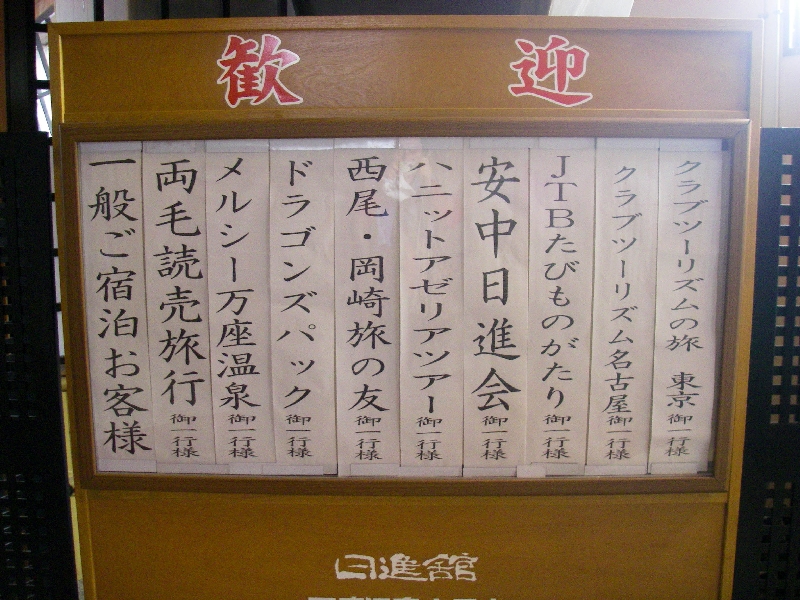 歓迎
クラブツーリズムの旅 東京 御一行様
クラブツーリズム名古屋 御一行様
JTBたびものがたり 御一行様
安中日進会 御一行様
ハニットアゼリアツアー 御一行様
西尾・岡崎旅の友 御一行様
ドラゴンズパック 御一行様
メルシー万座温泉 御一行様
両毛読売旅行 御一行様
一般ご宿泊お客様
日進舘